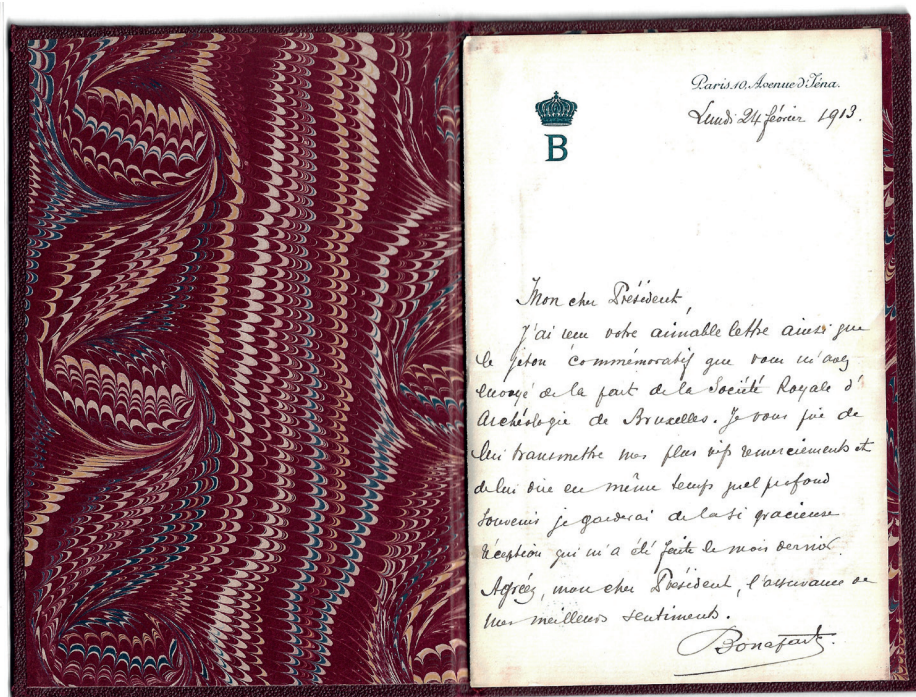 Paris.10, Avenue d'Iéna.
Lundi 24 février 1913.
B
Mon cher Président,
J'ai reçu votre aimable lettre ainsi que
le jeton commémoratif que vous m'avez
envoyé de la part de la Société Royale d'
Archéologie de Bruxelles. Je vous prie de
lui transmettre mes plus vifs remerciements et
de lui dire en même temps quel profond
souvenir je garderai de la si gracieuse
réception qui m'a été faite le mois dernier.
Agréez, mon cher Président, l'assurance de
mes meilleurs sentiments.
Bonaparte.